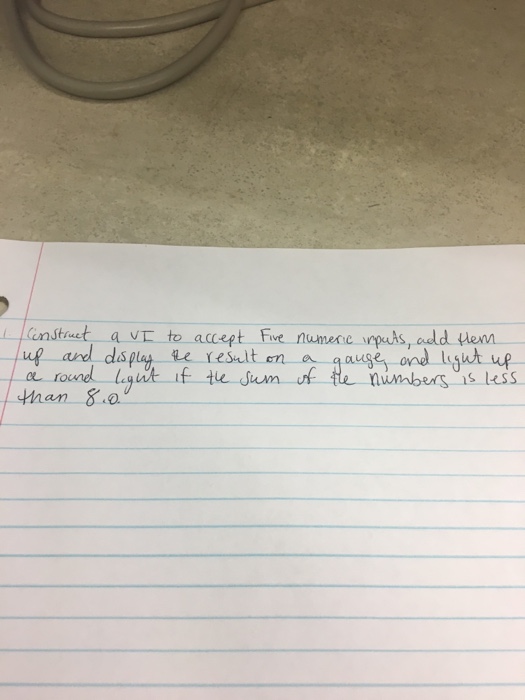 1 Construct a VI to accept Five numeric inputs, add them
up and display the result on a gauge, and light up
a round light if the sum of the numbers is less
than 8.0